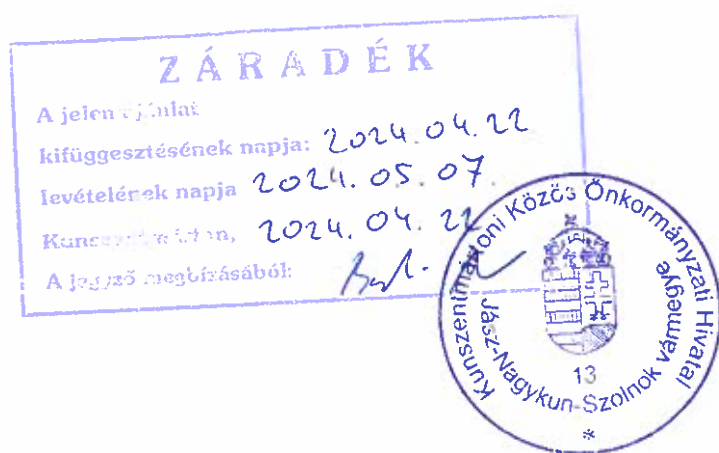 ZÁRADÉK
A jelen
kifüggesztésének napja: 2024.04.22
levételének napja 2024.05.07.
2024.04.22
A jegyző megbízásából:
Kunszentmártoni Közös Önkormányzati Hivatal
Jász-Nagykun-Szolnok vármegye
13
*